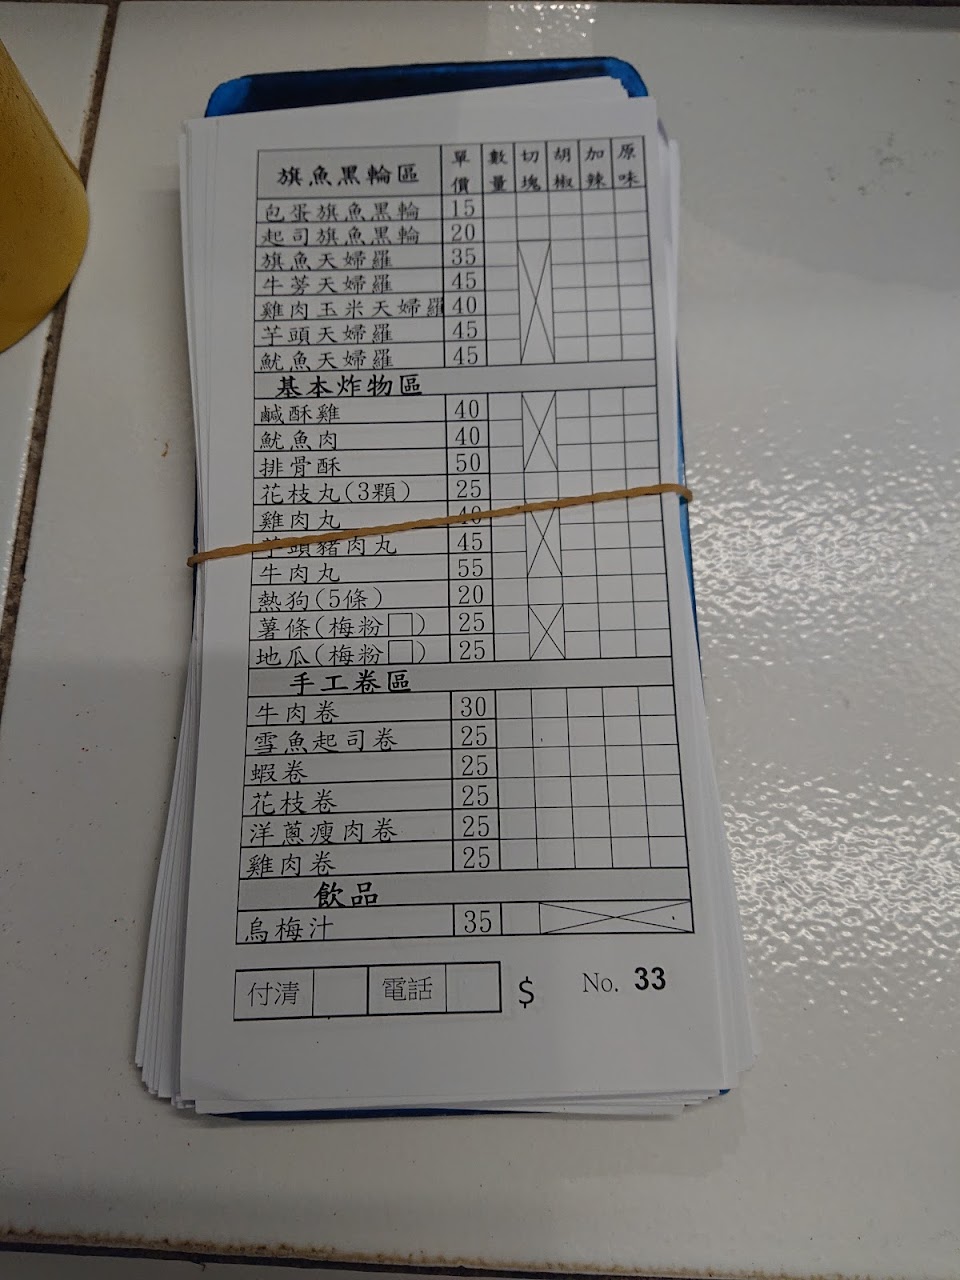 旗魚黑輪區 單價 數量 切塊 胡椒 加辣 原味
包蛋旗魚黑輪 15
起司旗魚黑輪 20
旗魚天婦羅 35
牛蒡天婦羅 45
雞肉玉米天婦羅 40
芋頭天婦羅 45
魷魚天婦羅 45
基本炸物區
鹹酥雞 40
魷魚肉 40
排骨酥 50
花枝丸(3顆) 25
雞肉丸 40
芋頭豬肉丸 45
牛肉丸 55
熱狗(5條) 20
薯條(梅粉□) 25
地瓜(梅粉□) 25
手工卷區
牛肉卷 30
雪魚起司卷 25
蝦卷 25
花枝卷 25
洋蔥瘦肉卷 25
雞肉卷 25
飲品
烏梅汁 35
付清 電話 $ No. 33